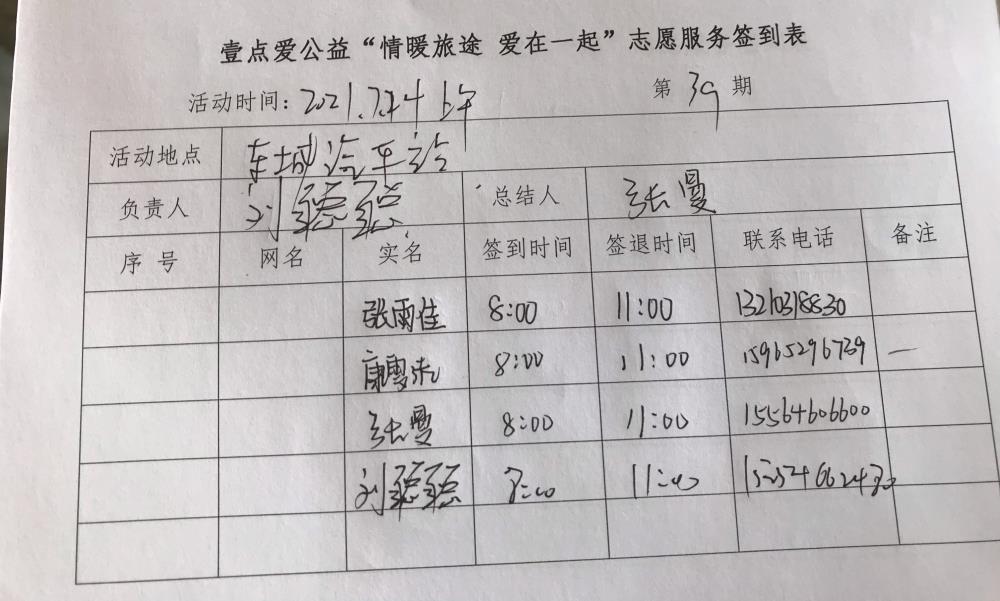 壹点爱公益“情暖旅途 爱在一起”志愿服务签到表
活动时间：2021.7.24上午 第39期
活动地点 东城汽车站
负责人 刘 总结人 张曼
序号 网名 实名 签到时间 签退时间 联系电话 备注
张雨佳 8:00 11:00 13210318830
康 8:00 11:00 15965296739 —
张曼 8:00 11:00 15564606600
刘 8:00 11:00